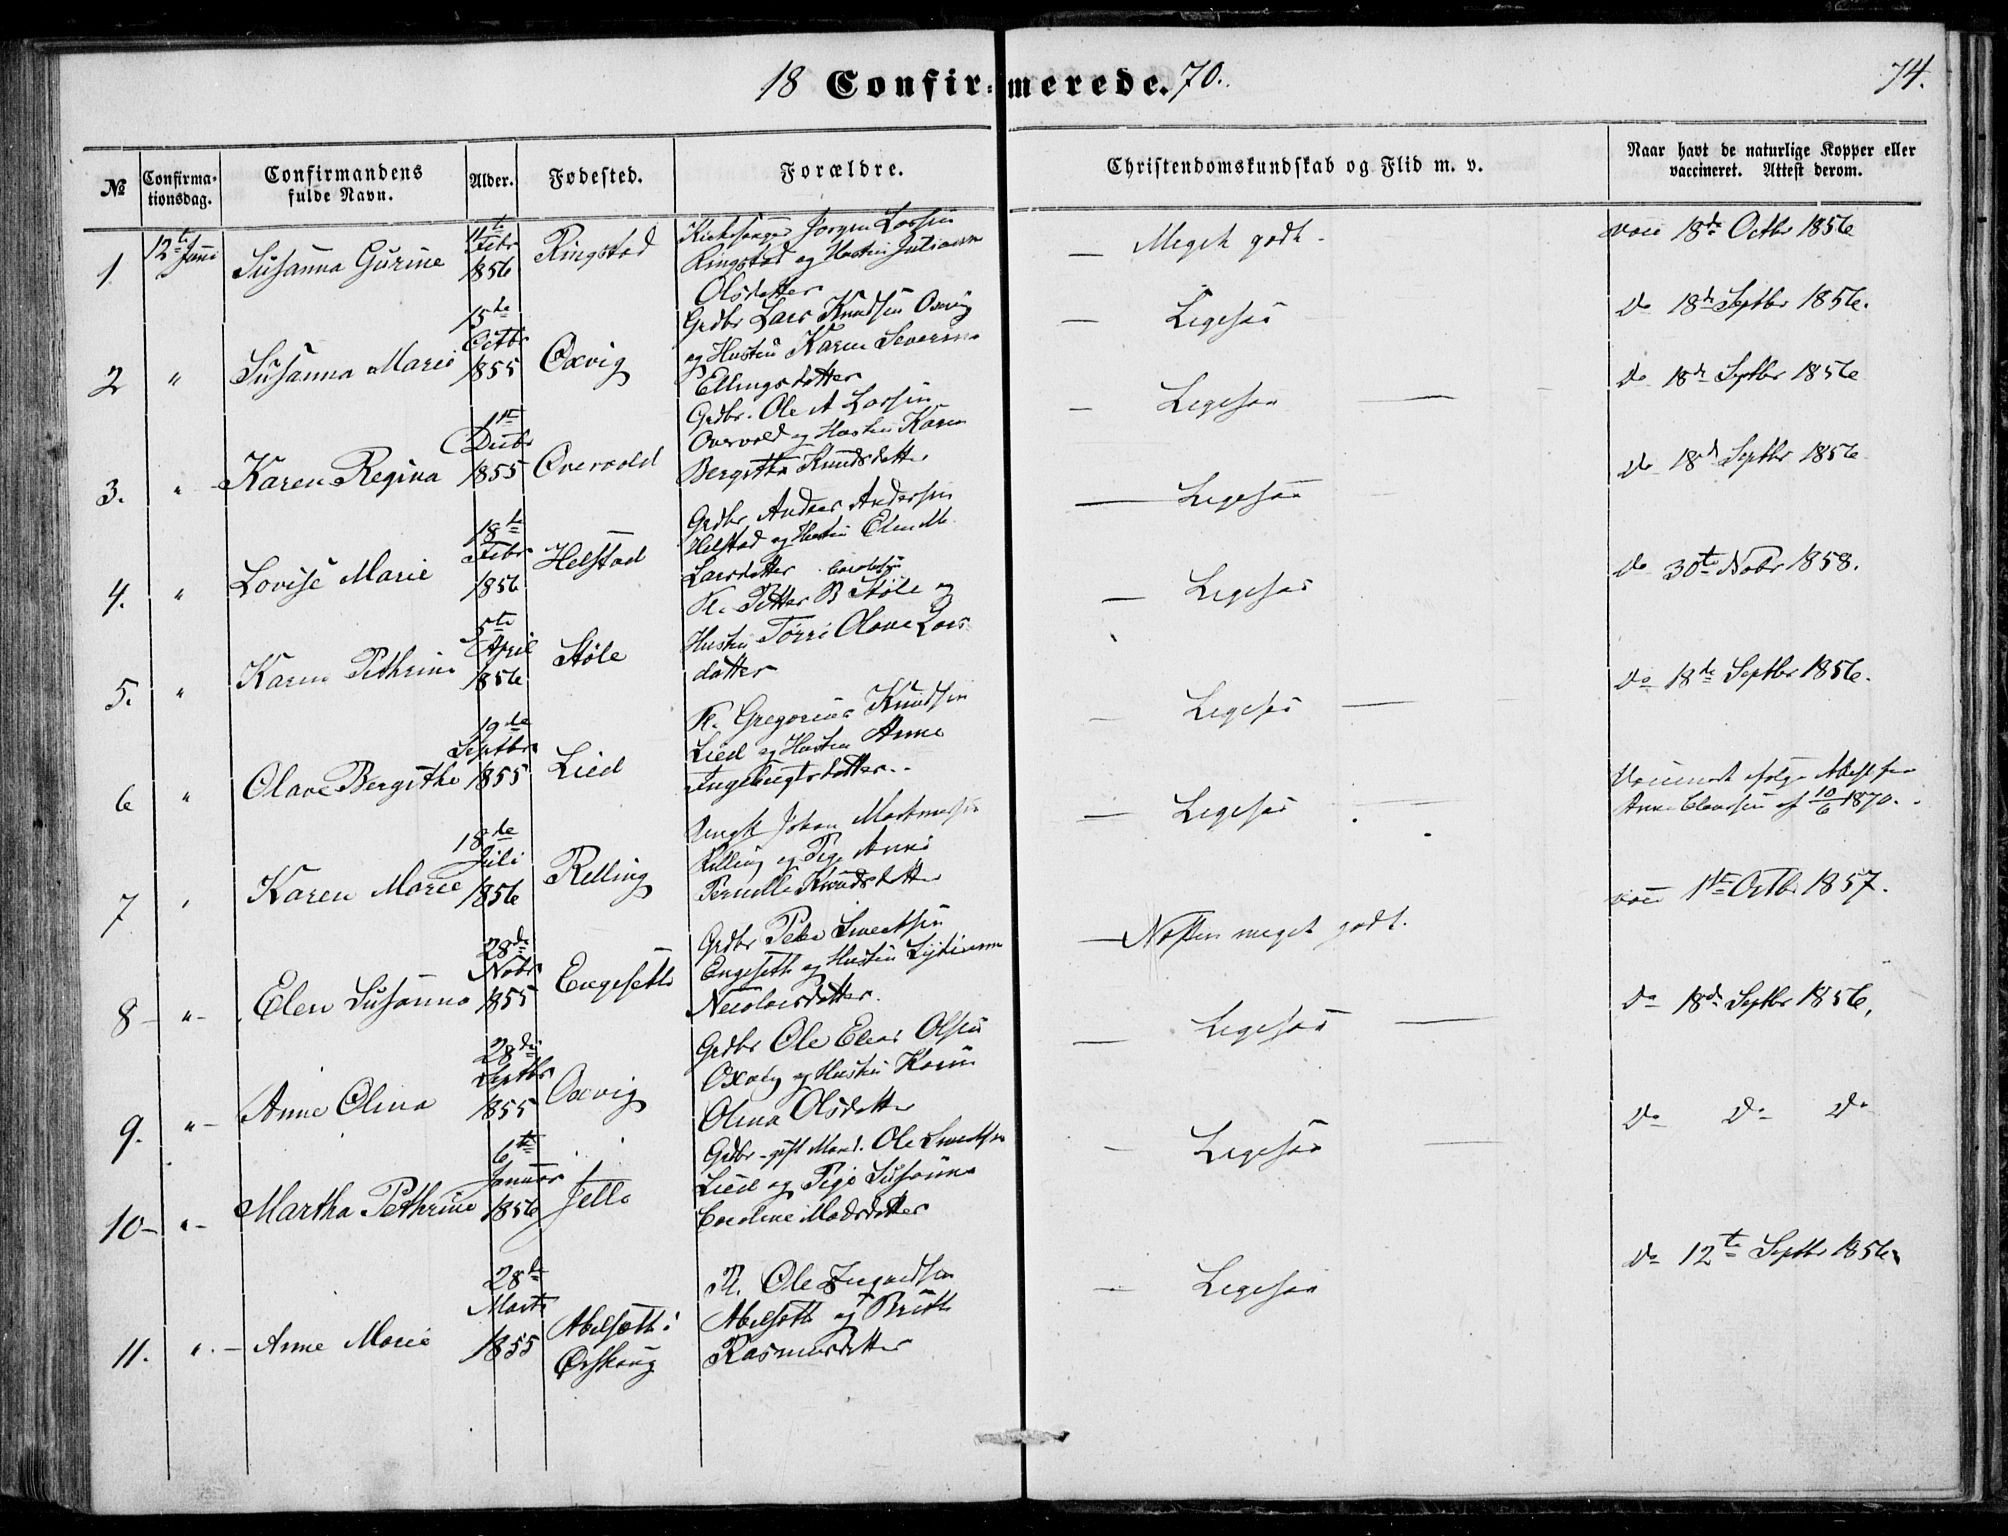 18 Confirmerede. 70.
74.
№
Confirma-
tionsdag.
Confirmandens
fulde Navn.
Alder.
Fødested.
Forældre.
Christendomskundskab og Flid m. v.
Naar havt de naturlige Kopper eller
vaccineret. Attest derom.
1
12te Juni
Susanna Gurine
11te
Febr
1856
Ringstad
Kirkesanger Jørgen Larsen
Ringstad og Hustru Juliane
Olsdatter
— Meget godt.
vacc 18de Octbr 1856
2
"
Susanna Marie
15de
Octbr
1855
Oxvig
Grdbr Lars Knudsen Oxvig
og Hustru Karen Severine
Ellingsdatter
— Ligesaa
Do 18de Septbr 1856.
3.
"
Karen Regina
1ste
Decbr
1855
Overvold
Grdbr. Ole A Larsen
Overvold og Hustru Karen
Bergitha Knudsdatter
— Ligesaa —
Do 18de Septbr 1856
4.
"
Lovise Marie
18de
Febr
1856
Helstad
Grdbr Andreas Andersen
Helstad og Hustru Elen M.
Larsdatter
— Ligesaa
Do 18de Septbr 1856
5.
"
Karen Pethrine
5te
April
1856
Støle
Petter B Støle og
Hustru Olave Lars
datter
— Ligesaa
Do 30te Novbr 1858.
6
"
Olave Bergithe
19de
Septbr
1855
Lied
Gregorius Knudsen
Lied og Hustru Anne
Ingebrigtsdatter..
— Ligesaa —
Do 18de Septbr 1856.
7
"
Karen Marie
18de
Juli
1856
Relling
Ungk Johan Martinussen
Relling og Pige Anne
Pernille Knudsdatter
— Ligesaa
Vaccinert ifølge Attest fra
Anne Clausen af 10/6 1870.
8 -
" -
Elen Susanna
28de
Nobr
1855
Engesætt
Grdbr Peter Sivertsen
Engesætt og Hustru
Nicolaisdatter.
— Næsten meget godt.
vacc 1ste Octbr 1857.
9.
" -
Anne Olina
28de
Septbr
1855
Oxvig
Grdbr Ole Elias Olsen
Oxvig og Hustru Karen
Olina Olsdatter
— Ligesaa —
Do 18de Septbr 1856,
10 -
" -
Martha Pethrine
6te
Januar
1856
Jelle
Grdbr - gift Mand. Ole Sivertsen
Lied og Pige Susanna
Caroline Madsdatter
— Ligesaa —
Do Do Do
11.
" -
Anne Marie
28de
Marts
1855
Abelsætt i
Ørskoug
Ole
Abelsætt og Brithe
Rasmusdatter
— Ligesaa
Do 12te Septbr 1856.